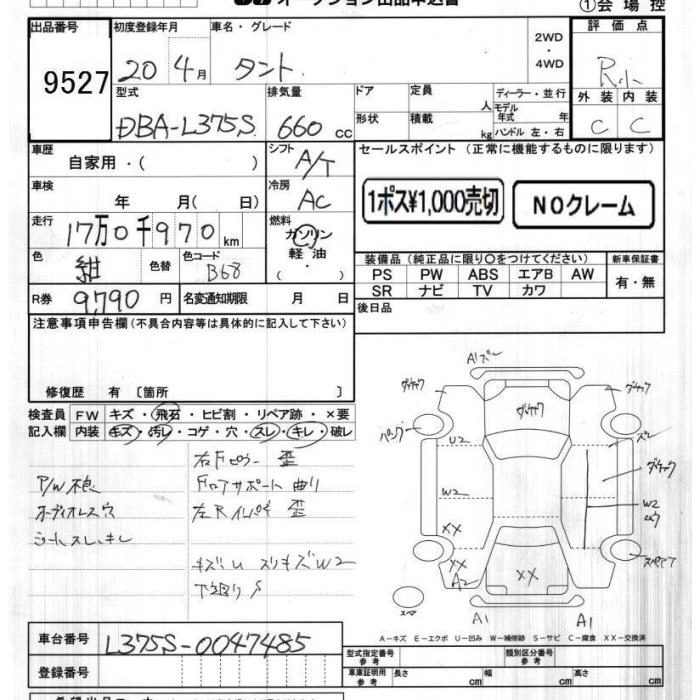 ①会場控
出品番号
9527
初度登録年月
20 4月
車名・グレード
タント
2WD
・
4WD
評価点
R小
外装 内装
C C
型式
DBA-L375S
排気量
660 cc
ドア
定員
人
ディーラー・並行
モデル年式 年
形状
積載
kg
ハンドル 左・右
車歴
自家用・( )
シフト
A/T
セールスポイント (正常に機能するものに限ります)
1ポス¥1,000売切
NOクレーム
車検
年 月( 日)
冷房
AC
走行
17万0千970km
燃料
ガソリン
軽油
( ・ )
色
紺
色替
色コード
B68
装備品(純正品に限り○をつけてください)
新車保証書
PS PW ABS エアB AW
SR ナビ TV カワ
有・無
R券
9,790円
名変通知期限
月 日
後日品
注意事項申告欄(不具合内容等は具体的に記入して下さい)
修復歴 有 〔箇所 〕
検査員
記入欄
FW キズ・飛石・ヒビ割・リペア跡・×要
内装 キズ・汚レ・コゲ・穴・スレ・キレ・破レ
P/W不良
オーディオレス穴
シートスレ、キレ
右Fピラー 歪
Fロアサポート 曲り
左Rインパネ 歪
キズU スリキズW2
下廻りS
A1ズレ
ダキック
U2
W2
XX
XX
A2
XX
A1
A1
W2
スペアT
スペア
A-キズ E-エクボ U-凹み W-補修跡 S-サビ C-腐食 XX-交換済
車台番号
L375S-0047485
登録番号
型式指定番号
参考
類別区分番号
参考
車庫証明用
参考
長さ cm
幅 cm
高さ cm